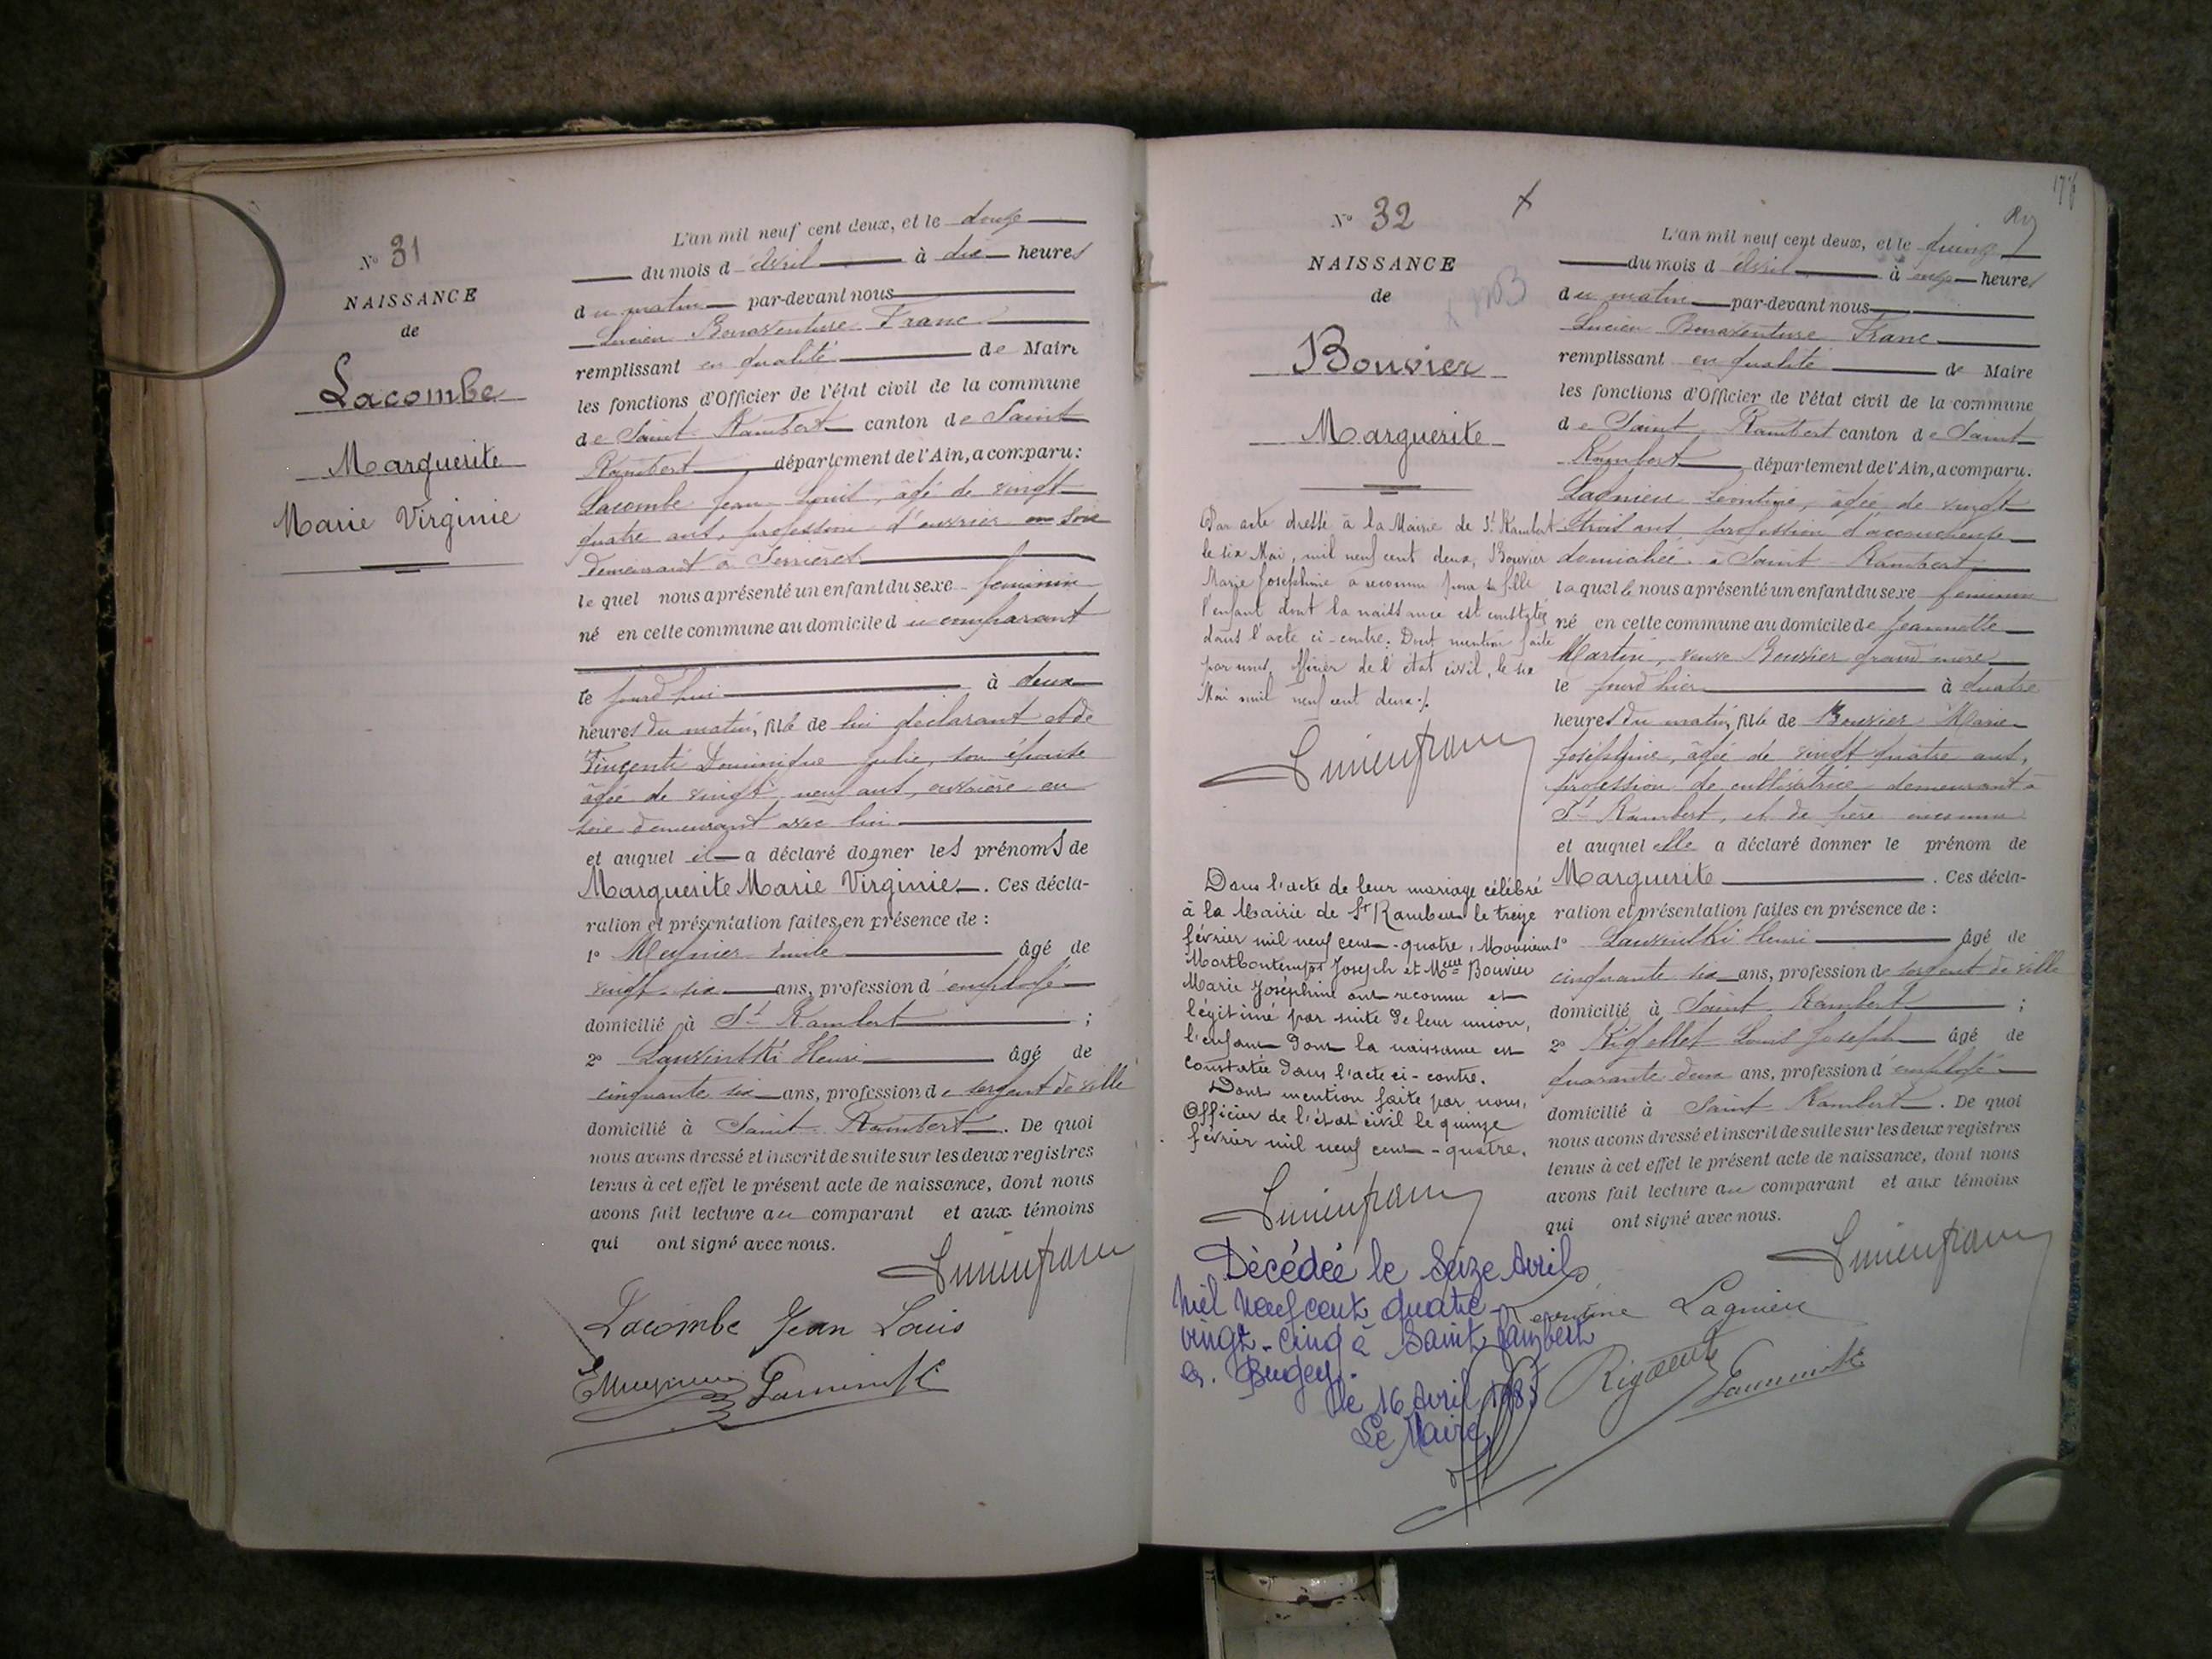 N° 31
NAISSANCE
de
Lacombe
Marguerite
Marie Virginie
L'an mil neuf cent deux, et le douze
du mois d'Avril à dix heures
du matin par-devant nous
Lucien Bonaventure Franc
remplissant en qualité de Maire
les fonctions d'Officier de l'état civil de la commune
de Saint Rambert canton de Saint
Rambert département de l'Ain, a comparu:
Lacombe Jean Louis, âgé de vingt
quatre ans, profession d'ouvrier en soie
demeurant à Serrières
lequel nous a présenté un enfant du sexe féminin
né en cette commune au domicile du comparant
le jourd'hui à deux
heures du matin, fille de lui déclarant et de
Vincenti Dominique Julie, son épouse
âgée de vingt neuf ans, ouvrière en
soie demeurant avec lui
et auquel il a déclaré donner les prénoms de
Marguerite Marie Virginie. Ces décla-
ration et présentation faites en présence de :
1° Meynier Emile âgé de
vingt six ans, profession d'employé
domicilié à St Rambert ;
2° Henri âgé de
cinquante six ans, profession de sergent de ville
domicilié à Saint Rambert. De quoi
nous avons dressé et inscrit de suite sur les deux registres
tenus à cet effet le présent acte de naissance, dont nous
avons fait lecture au comparant et aux témoins
qui ont signé avec nous.
Lucien Franc
Lacombe Jean Louis
EMeynier
N° 32
NAISSANCE
de
Bouvier
Marguerite
Par acte dressé à la Mairie de St Rambert
le six Mai, mil neuf cent deux, Bouvier
Marie Joséphine a reconnu pour sa fille
l'enfant dont la naissance est constatée
dans l'acte ci-contre. Dont mention faite
par nous, officier de l'état civil, le six
Mai mil neuf cent deux ./.
Lucien Franc
Dans l'acte de leur mariage célébré
à la Mairie de St Rambert le treize
février mil neuf cent-quatre, Monsieur
Joseph et Melle Bouvier
Marie Joséphine ont reconnu et
légitimé par suite de leur union,
l'enfant dont la naissance est
constatée dans l'acte ci-contre.
Dont mention faite par nous,
Officier de l'état civil le quinze
février mil neuf cent-quatre.
Lucien Franc
Dècédée le Seize Avril
mil neuf cent quatre
vingt-cinq à Saint Rambert
en Bugey.
le 16 Avril 1985
Le Maire,
L'an mil neuf cent deux, et le quinze
du mois d'Avril à onze heures
du matin par-devant nous
Lucien Bonaventure Franc
remplissant en qualité de Maire
les fonctions d'Officier de l'état civil de la commune
de Saint Rambert canton de Saint
Rambert département de l'Ain, a comparu.
Lagnieu Léontine, âgée de vingt
trois ans, profession d'accoucheuse
domiciliée à Saint Rambert
laquelle nous a présenté un enfant du sexe féminin
né en cette commune au domicile de Jeannette
Martin, veuve Bouvier grand'mère
le jour d'hier à quatre
heures du matin, fille de Bouvier Marie
Joséphine, âgée de vingt quatre ans,
profession de cultivatrice demeurant à
St Rambert, et de père inconnu
et auquel elle a déclaré donner le prénom de
Marguerite. Ces décla-
ration et présentation faites en présence de :
1° Henri âgé de
cinquante six ans, profession de sergent de ville
domicilié à Saint Rambert ;
2° Louis Joseph âgé de
quarante deux ans, profession d'employé
domicilié à Saint Rambert. De quoi
nous avons dressé et inscrit de suite sur les deux registres
tenus à cet effet le présent acte de naissance, dont nous
avons fait lecture au comparant et aux témoins
qui ont signé avec nous.
Lucien Franc
Léontine Lagnieu